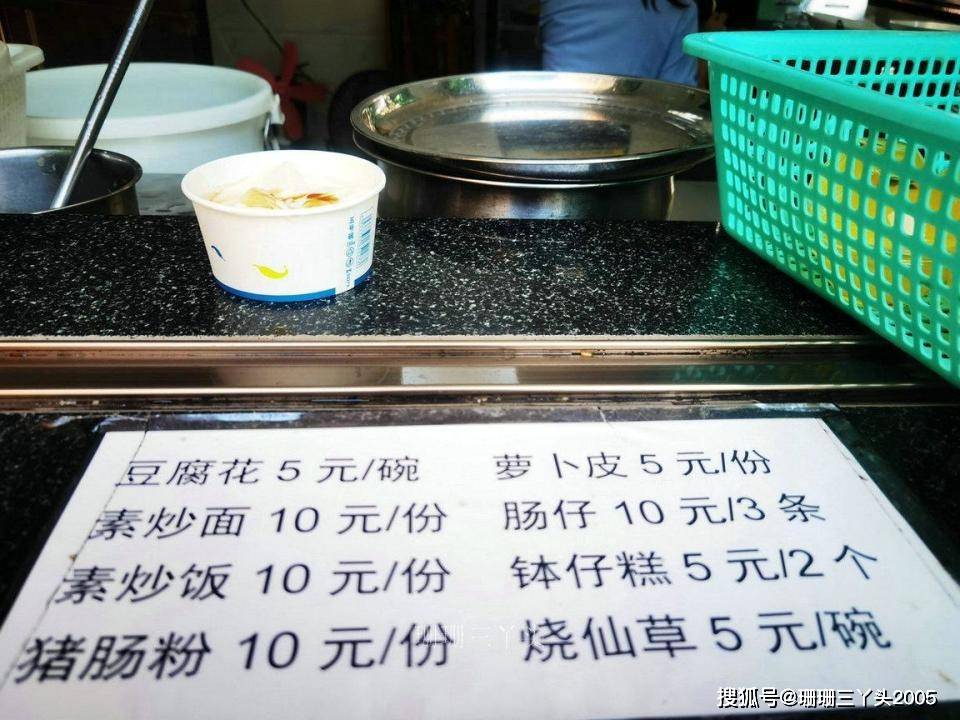 豆腐花 5 元/碗 萝卜皮 5 元/份
素炒面 10 元/份 肠仔 10 元/3 条
素炒饭 10 元/份 钵仔糕 5 元/2 个
猪肠粉 10 元/份 烧仙草 5 元/碗
珊珊三丫头
搜狐号@珊珊三丫头2005